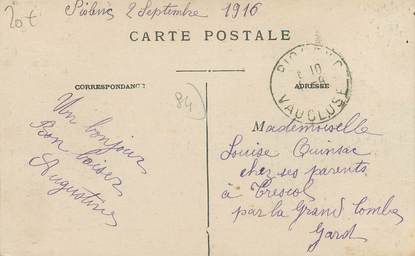 20 €
Piolenc 2 Septembre 1916
CARTE POSTALE
CORRESPONDANCE
ADRESSE
PIOLENC
10
VAUCLUSE
84
Un bonjour
Bon baiser
Augustine
Mademoiselle
Louise Quinsac
chez ses parents
à Trescol
par la Grand Combe
Gard